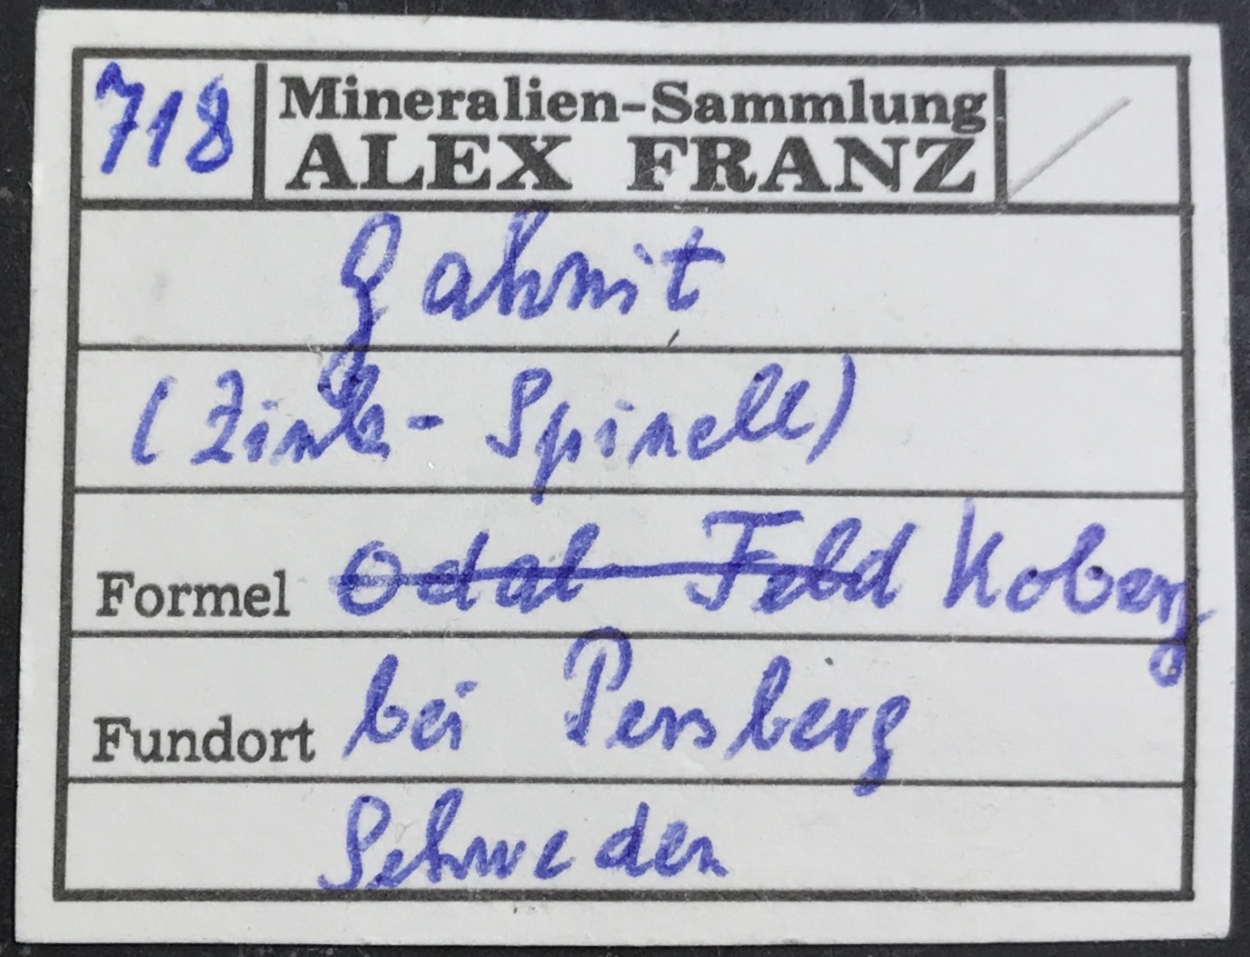 718 Mineralien-Sammlung
ALEX FRANZ
Gahnit
(Zink-Spinell)
Formel Odal Feld Koberg
Fundort bei Persberg
Schweden